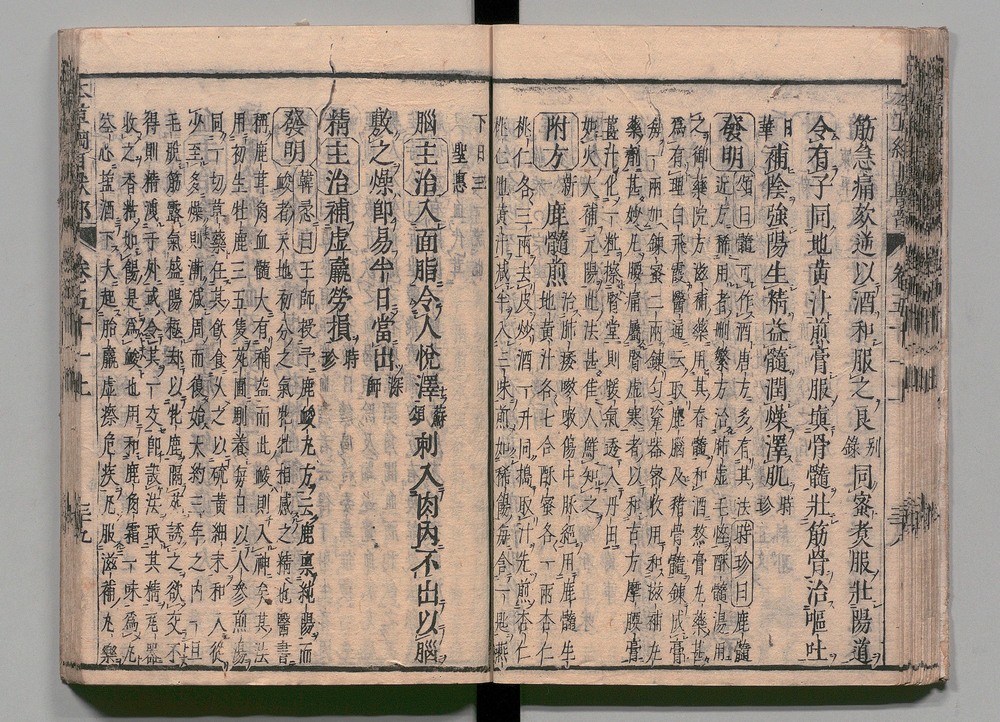 筋急痛欬逆以酒和服之良別錄同蜜煑服壯陽道
令有子同地黃汁煎膏服塡骨髓壯筋骨治嘔吐
日華補陰強陽生精益髓潤燥澤肌時珍
發明頌曰髓可作酒唐方多有其法時珍曰鹿髓
近方稀用者刪繁方治肺虛毛悴酥髓湯用
之御藥院方滋補藥用其脊髓和酒熬膏丸藥甚
爲有理白飛霞醫通云取鹿腦及諸骨髓鍊成膏
每一兩加鍊蜜二兩鍊勻瓷器密收用和滋補丸
藥劑甚妙凡腰痛屬腎虛寒者以和古方摩腰膏
薑汁化一粒擦腎堂則暖氣透入丹田
如火大補元陽此法甚佳人鮮知之
附方新一鹿髓煎治肺痿欬嗽傷中脉絕用鹿髓生
地黃汁各七合酥蜜各一兩杏仁
桃仁各三兩去皮炒酒一升同搗取汁先煎杏仁
桃仁地黃汁減半入三味煎如稀餳每含一匙嚥
下日三聖惠
腦主治入面脂令人悅澤蘇頌刺入肉內不出以腦
敷之燥即易半日當出深師
精主治補虛羸勞損時珍
發明韓悉曰王師授予鹿峻丸方云鹿稟純陽而
峻者天地初分之氣牝牡相感之精也醫書
稱鹿茸角血髓大有補益而此峻則入神矣其法
用初生牡鹿三五隻苑圃馴養每日以人參煎湯
同一切草藥任其飲食久之以硫黃細末和入從
少至多燥則漸減周而復始大約三年之內一旦
毛脫筋露氣盛陽極却以牝鹿隔苑誘之欲交不
得則精洩于外或令其一交即設法取其精瓦器
收之香粘如餳是爲峻也用和鹿角霜一味爲丸
空心鹽酒下大起胎羸虛瘵危疾凡服滋補丸藥